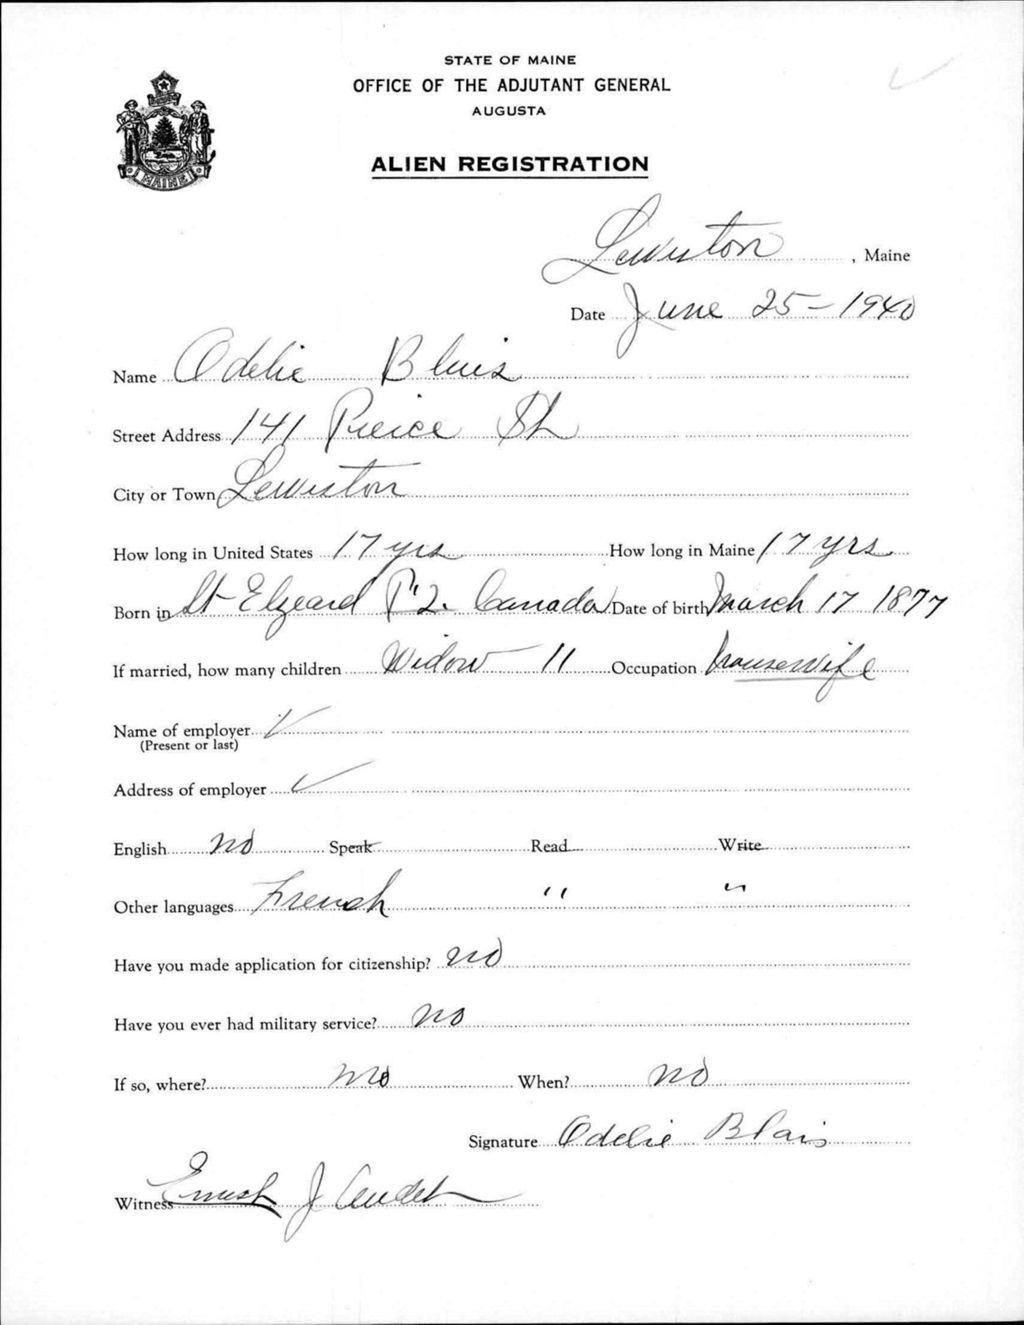 STATE OF MAINE
OFFICE OF THE ADJUTANT GENERAL
AUGUSTA
MAINE
ALIEN REGISTRATION
Lewiston, Maine
Date June 25 - 1940
Name Odelie Blais
Street Address 141 Pierce St
City or Town Lewiston
How long in United States 17 yrs How long in Maine 17 yrs
Born in St Elzeard P.Q. Canada Date of birth March 17 1877
If married, how many children Widow - 11 Occupation housewife
Name of employer ✓
(Present or last)
Address of employer ✓
English no Speak Read Write
Other languages French " "
Have you made application for citizenship? no
Have you ever had military service? no
If so, where? no When? no
Signature Odelie Blais
Witness Ernest J Audet